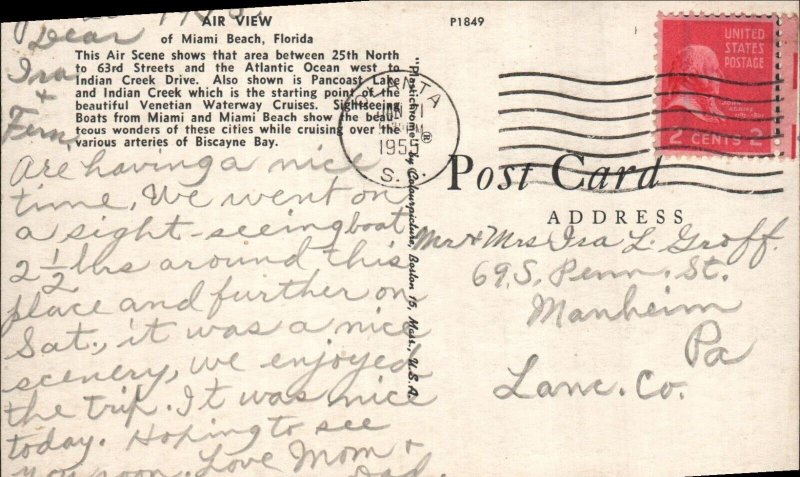 AIR VIEW
of Miami Beach, Florida
This Air Scene shows that area between 25th North
to 63rd Streets and the Atlantic Ocean west to
Indian Creek Drive. Also shown is Pancoast Lake
and Indian Creek which is the starting point of the
beautiful Venetian Waterway Cruises. Sightseeing
Boats from Miami and Miami Beach show the beau-
teous wonders of these cities while cruising over the
various arteries of Biscayne Bay.
P1849
Dear
Ira
+
Fern,
Are having a nice
time, We went on
a sight-seeing boat
2 1/2 hrs around this
place and further on
Sat., it was a nice
scenery, we enjoyed
the trip. It was nice
today. Hoping to see
you soon. Love Mom +
Dad.
"Plastichrome" by Colourpicture, Boston 15, Mass., U.S.A.
®
1955
UNITED
STATES
POSTAGE
JOHN
ADAMS
2 CENTS 2
Post Card
ADDRESS
Mr + Mrs Ira L. Groff.
69, S. Penn. St.
Manheim
Pa
Lanc. Co.